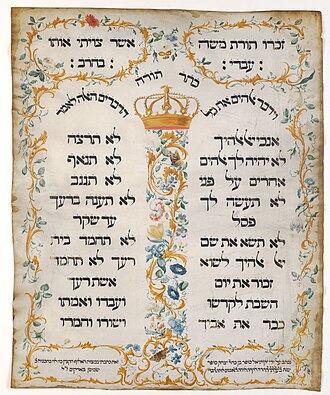 זכרו תורת משה
עבדי :
אשר צויתי אותו
בחרב :
כתר תורה
וידבר אהים את כל
הדברים האלה לאמר
אהיך
לא יהיה לך אהים
אחרים על פני
לא תעשה לך
פסל
לא תשא את שם
אהיך לשוא
זכור את יום
השבת לקדשו
כבד את אביך
לא תרצח
לא תנאף
לא תגנב
לא תענה ברעך
עד שקר
לא תחמד בית
רעך לא תחמד
אשת רעך
ועבדו ואמתו
ושורו וחמרו